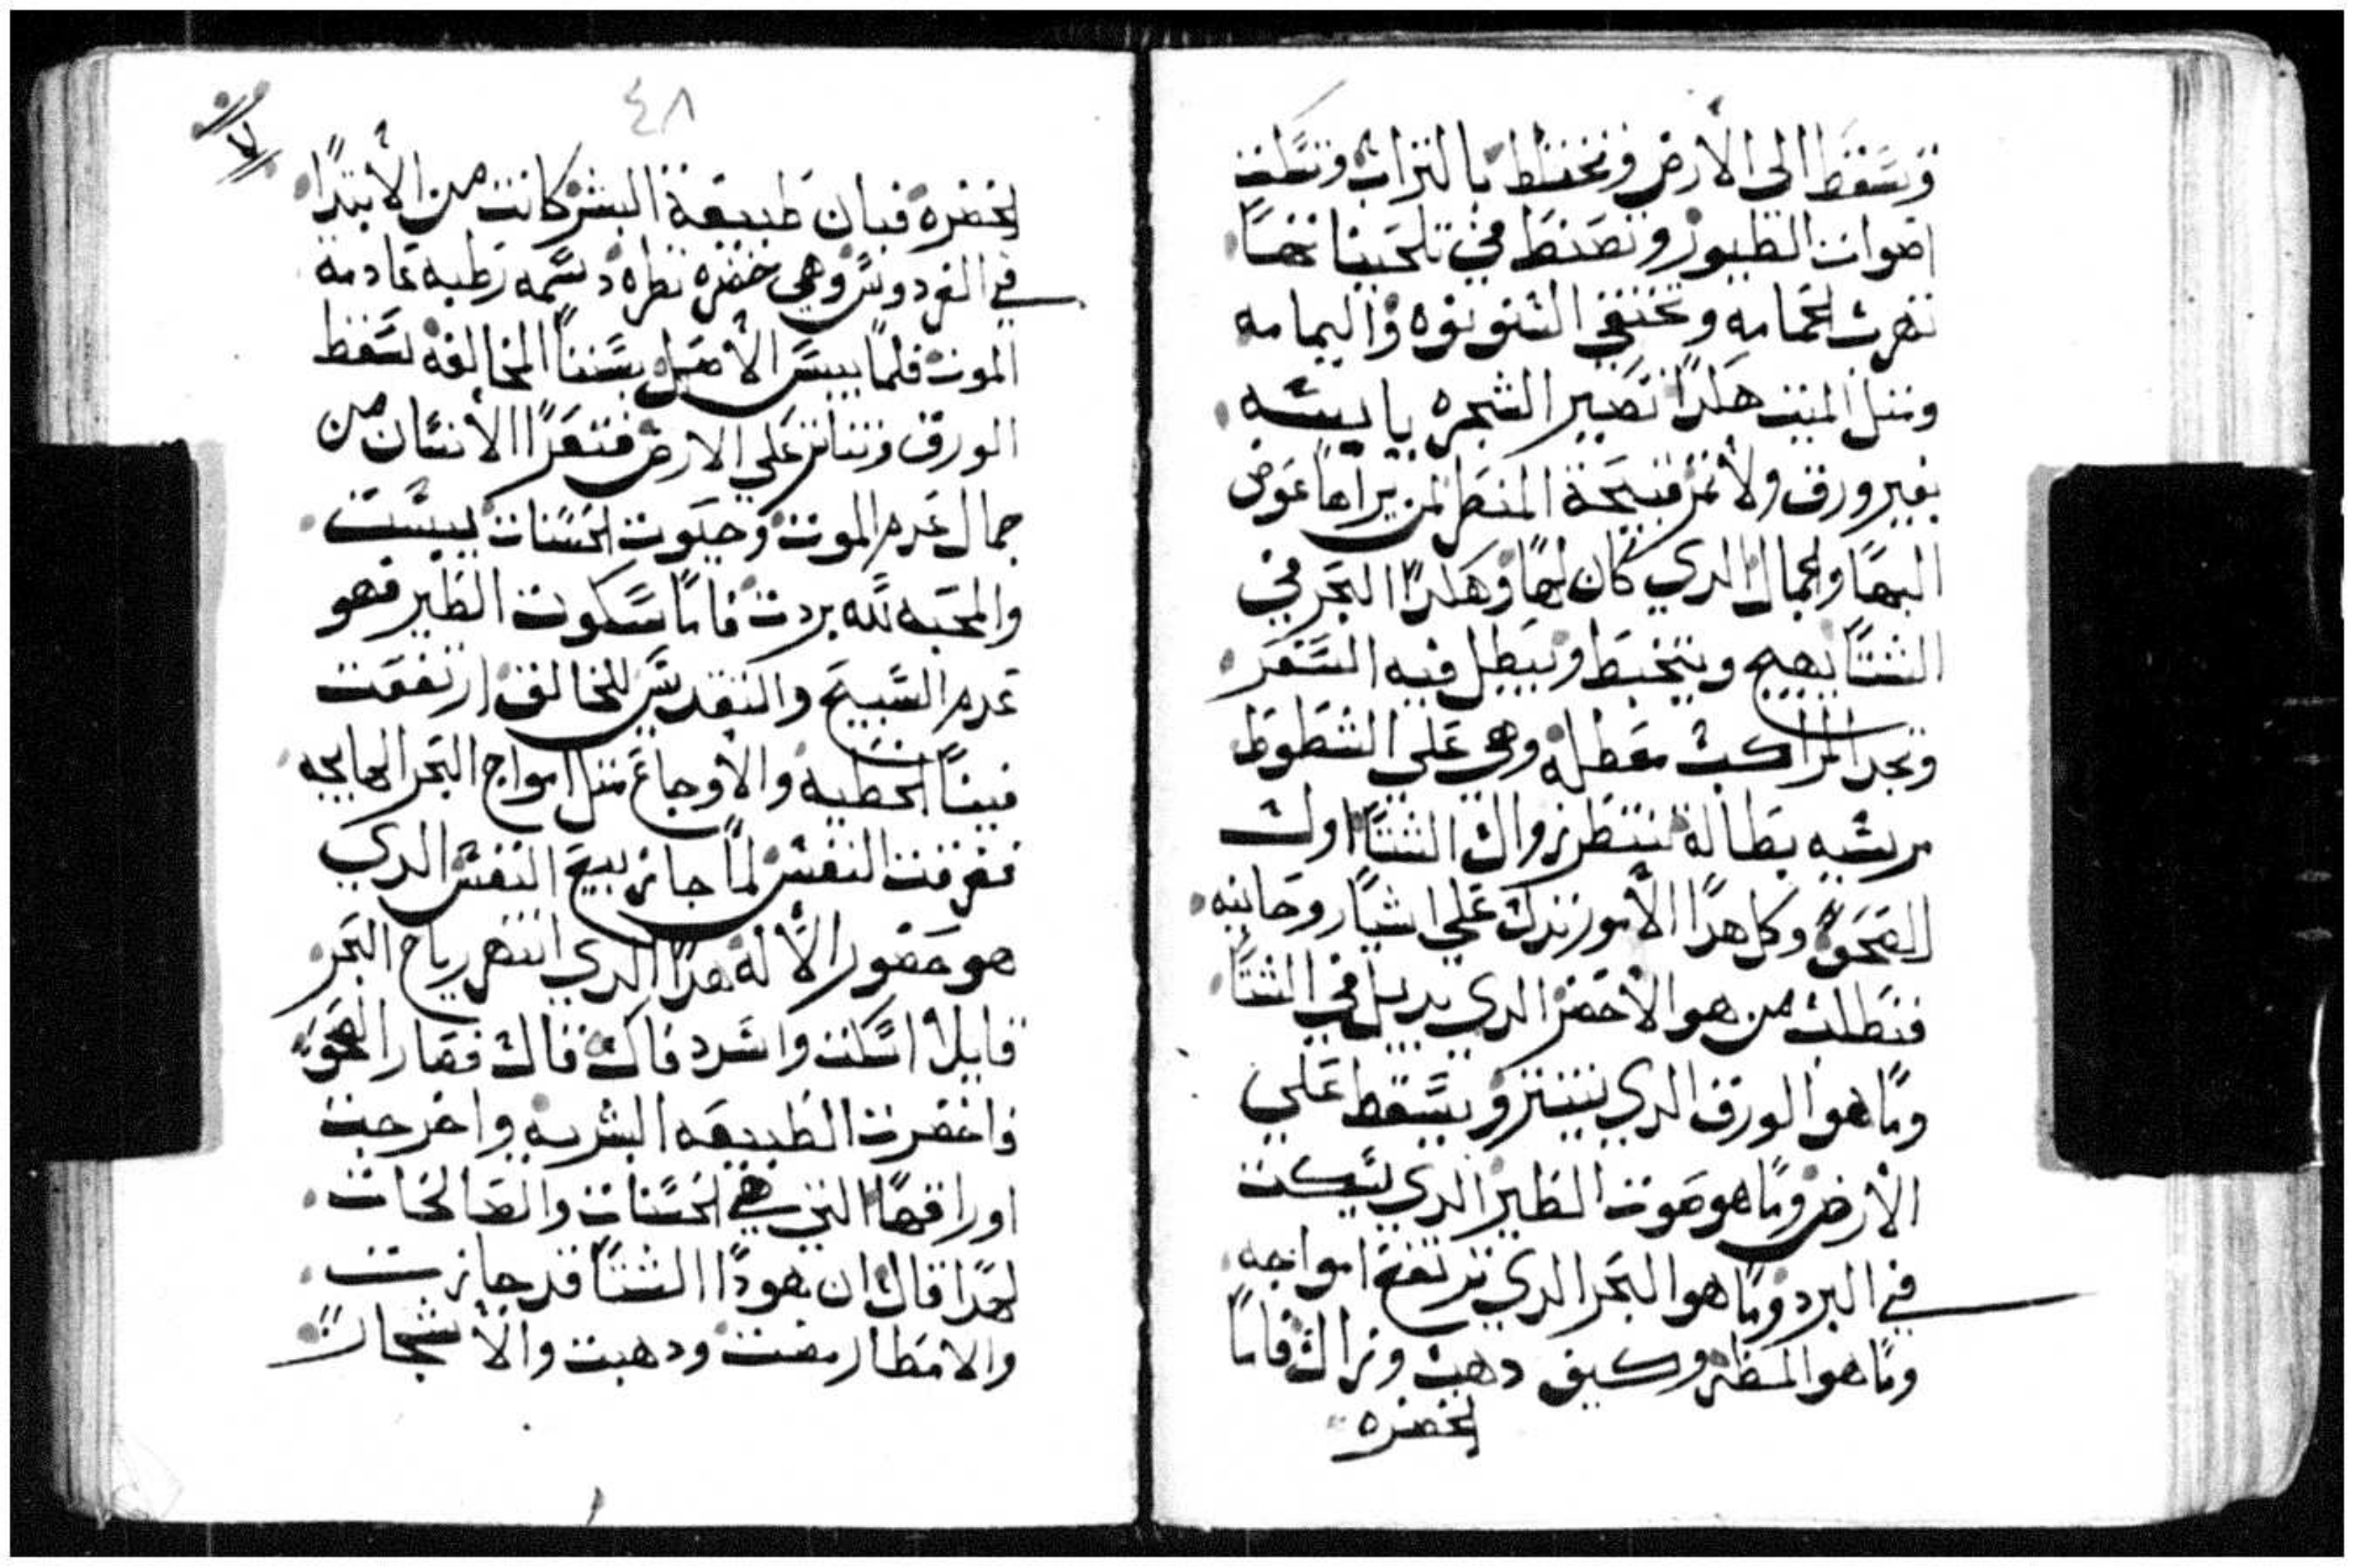 وتسقط الى الأرض وتختلط بالتراب وتسكت
اصوات الطيور وتصنط في تلحينا نحسا
تهرب الحمامه وتختفي السنونوه واليمامه
ومثل الميت هكدا تصير الشجره يابسه
بغير ورق ولا ثمر قبيحة المنظر لمن يراها عوض
البها والجمال الدي كان لها وهكدا البحر في
الشتا يهيج ويتخبط ويبطل فيه السفر
وتجد المراكب معطله وهي على الشطوط
مرسيه بطاله تنتظر زوال الشتا اول
الصحو وكل هدا الأمور تدل على اشيا روحانيه
فنطلب من هو الأخضر الدي يدبل في الشتا
وما هو الورق الدي ينتتر ويسقط على
الأرض وما هو صوت الطير الدي يسكت
في البرد وما هو البحر الدي ترتفع امواجه
وما هو المطر وكيف دهب وزال فاما
الخضره
٤٨
الخضره فبان طبيعة البشر كانت من الأبتدا
في الفردوس وهي خضره نظره دسمه رطبه عادمة
الموت فلما يبس الأصل بسبب المخالفة سقط
الورق وتناثر على الارض فتعرا الأنسان من
جمال عدم الموت وحيوت الحسنات يبست
والمحبه لله بردت فاما سكوت الطير فهو
عدم التسبيح والتقديس للخالق ارتفعت
فينا الخطيه والأوجاع مثل امواج البحر الهايجه
فغرقت النفس لما جا ربيع النفس الدي
هو حضور الأله هدا الدي انتهر رياح البحر
قايلا اسكت وانسد فاك قال فصار الصحو
واخضرت الطبيعه البشريه واخرجت
اوراقها التي هي الحسنات والصالحات
لهدا قال ان هودا الشتا قد جازت
والامطار مضت ودهبت والأشجار